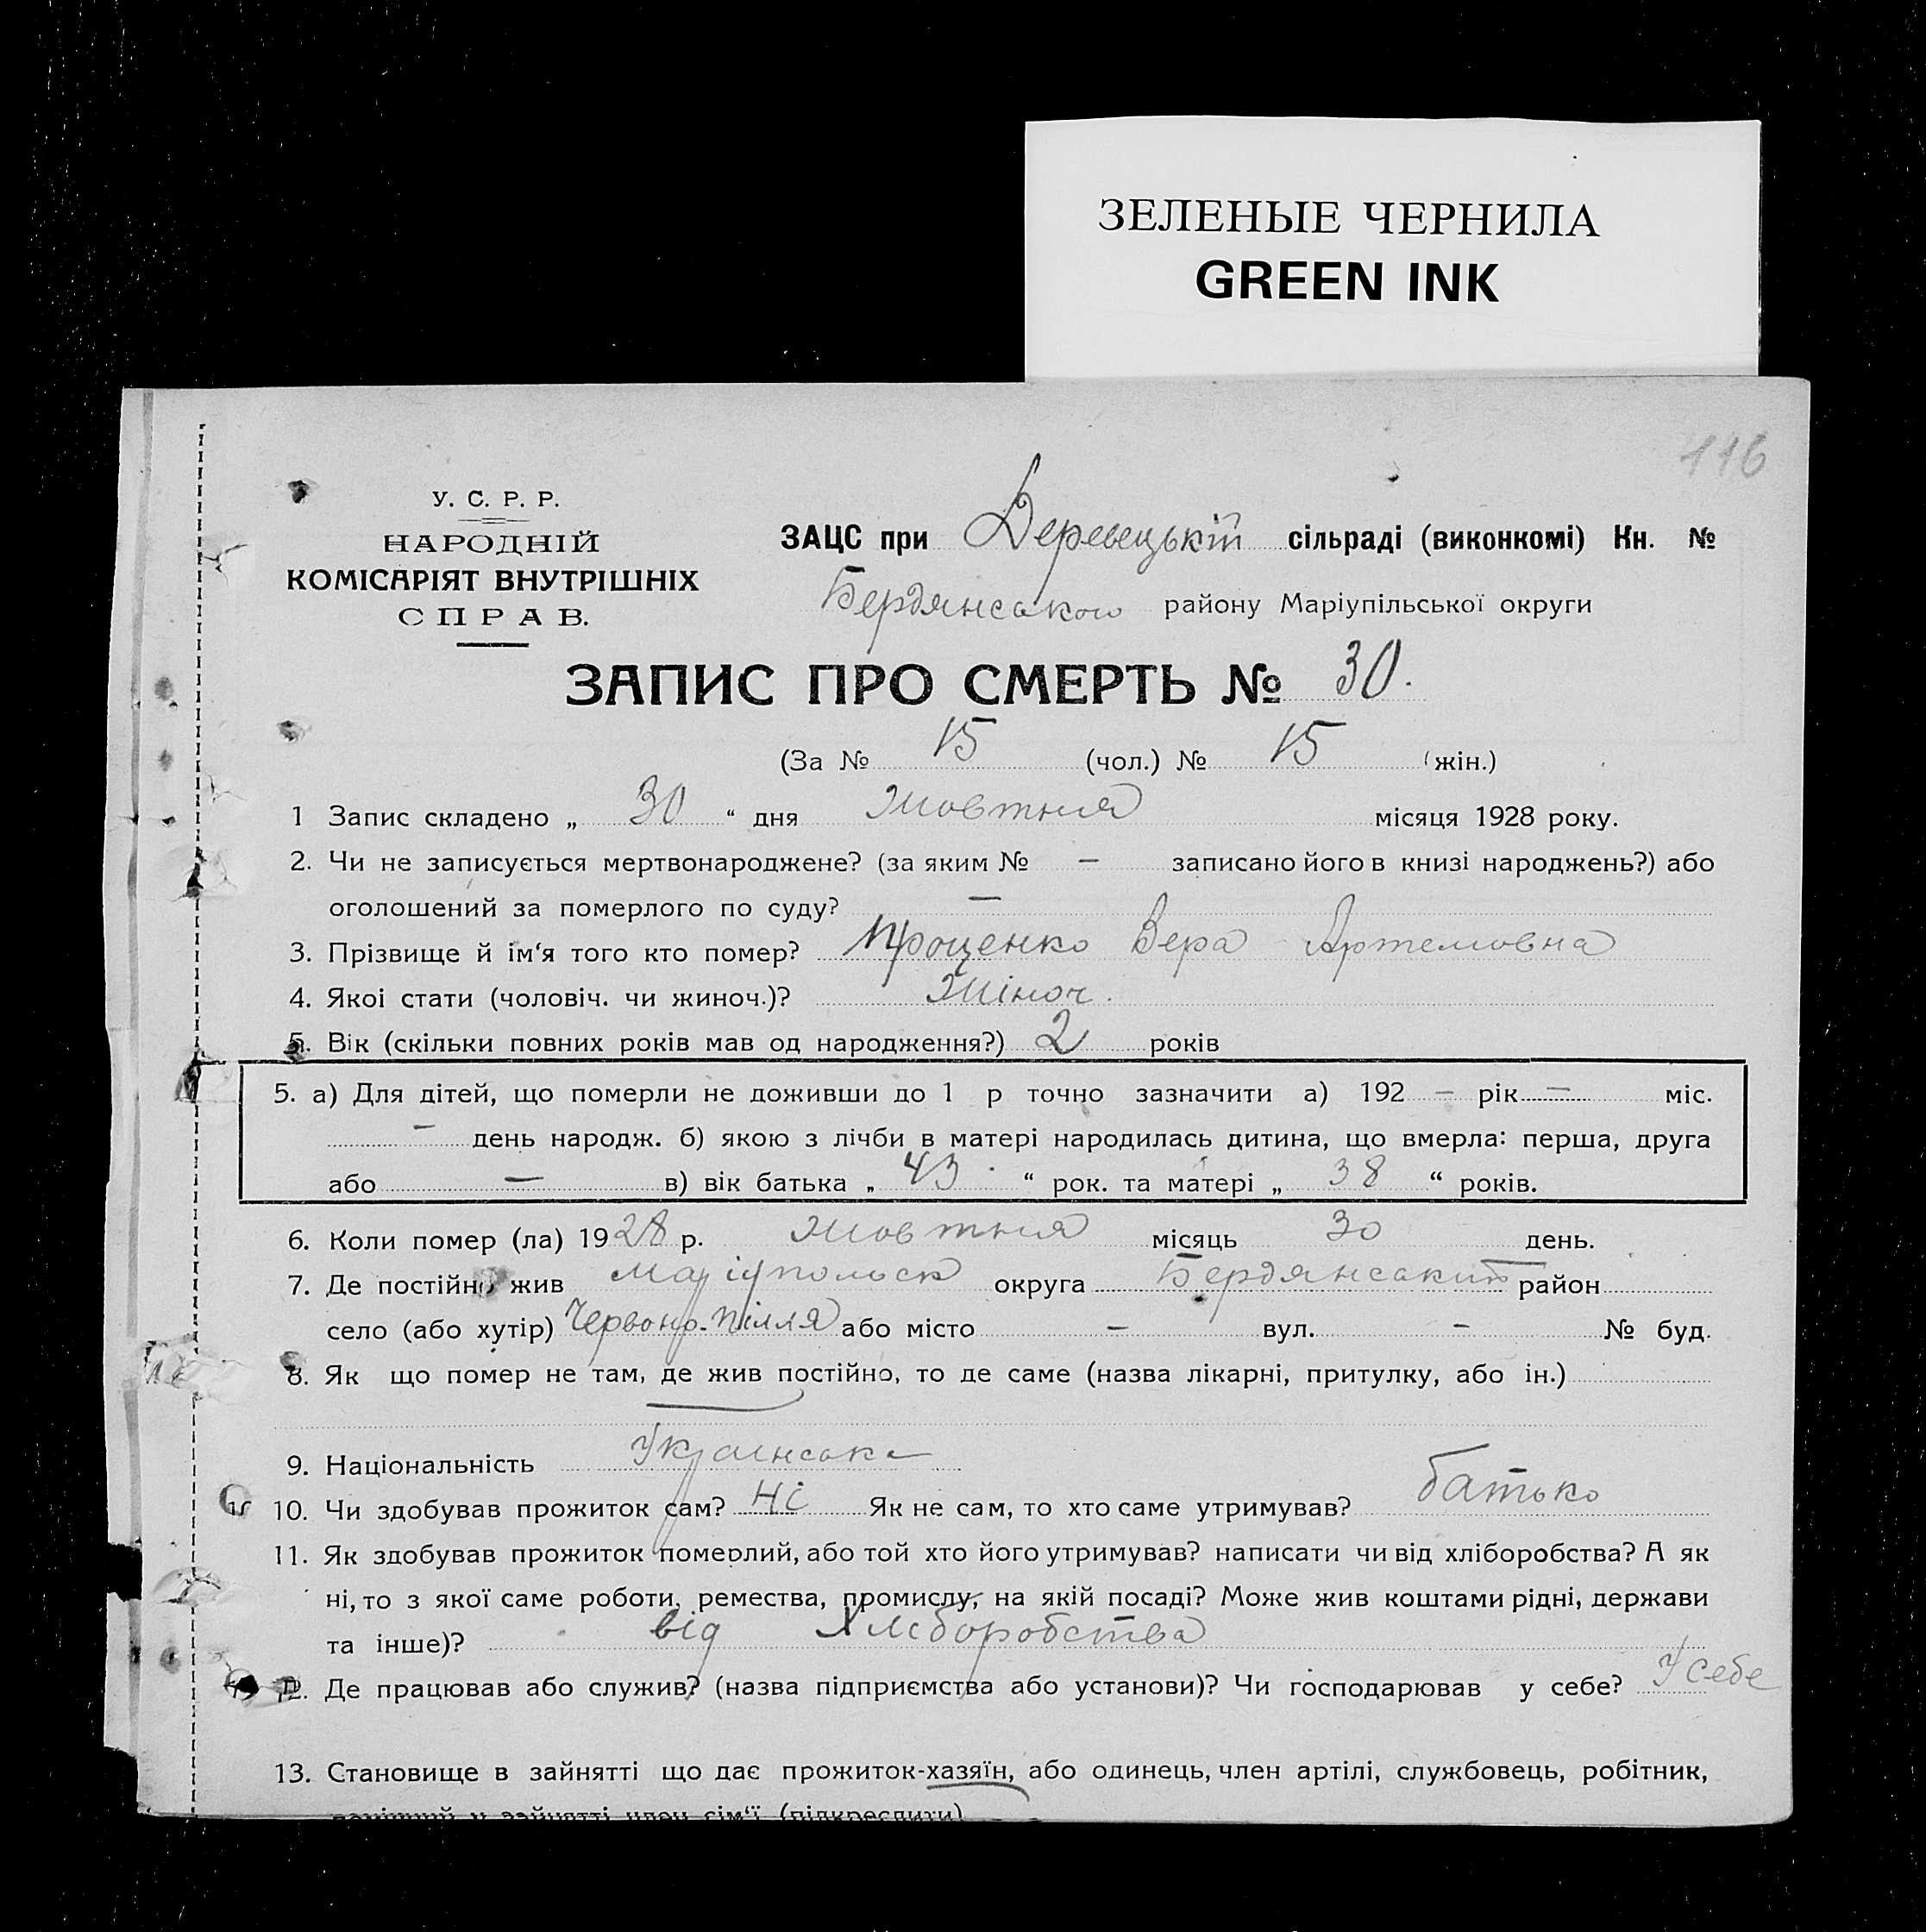 ЗЕЛЕНЫЕ ЧЕРНИЛА
GREEN INK
116
У. С. Р. Р.
НАРОДНІЙ
КОМІСАРІЯТ ВНУТРІШНІХ
СПРАВ.
ЗАЦС при Деревецькій сільраді (виконкомі) Кн. №
Бердянського району Маріупільської округи
ЗАПИС ПРО СМЕРТЬ № 30.
(За № 15 (чол.) № 15 (жін.)
1 Запис складено „ 30 “ дня Жовтня місяця 1928 року.
2. Чи не записується мертвонароджене? (за яким № — записано його в книзі народжень?) або
оголошений за померлого по суду? —
3. Прізвище й ім‘я того кто помер? Проценко Вера Артемовна
4. Якоі стати (чоловіч. чи жиноч.)? Жіноч.
5. Вік (скільки повних років мав од народження?) 2 років
5. а) Для дітей, що померли не доживши до 1 р точно зазначити а) 192 — рік — міс.
— день народж. б) якою з лічби в матері народилась дитина, що вмерла: перша, друга
або — в) вік батька „ 43 “ рок. та матері „ 38 “ років.
6. Коли помер (ла) 1928 р. Жовтня місяць 30 день.
7. Де постійно жив Маріупольск округа Бердянський район
село (або хутір) Червоно-Пілля або місто — вул. — № буд.
8. Як що помер не там, де жив постійно, то де саме (назва лікарні, притулку, або ін.)
9. Національність Українська
10. Чи здобував прожиток сам? Ні Як не сам, то хто саме утримував? батько
11. Як здобував прожиток померлий, або той хто його утримував? написати чи від хліборобства? А як
ні, то з якої саме роботи, ремества, промислу, на якій посаді? Може жив коштами рідні, держави
та інше)? від Хліборобства
12. Де працював або служив? (назва підприємства або установи)? Чи господарював у себе? У себе
13. Становище в зайнятті що дає прожиток-хазяїн, або одинець, член артілі, службовець, робітник,